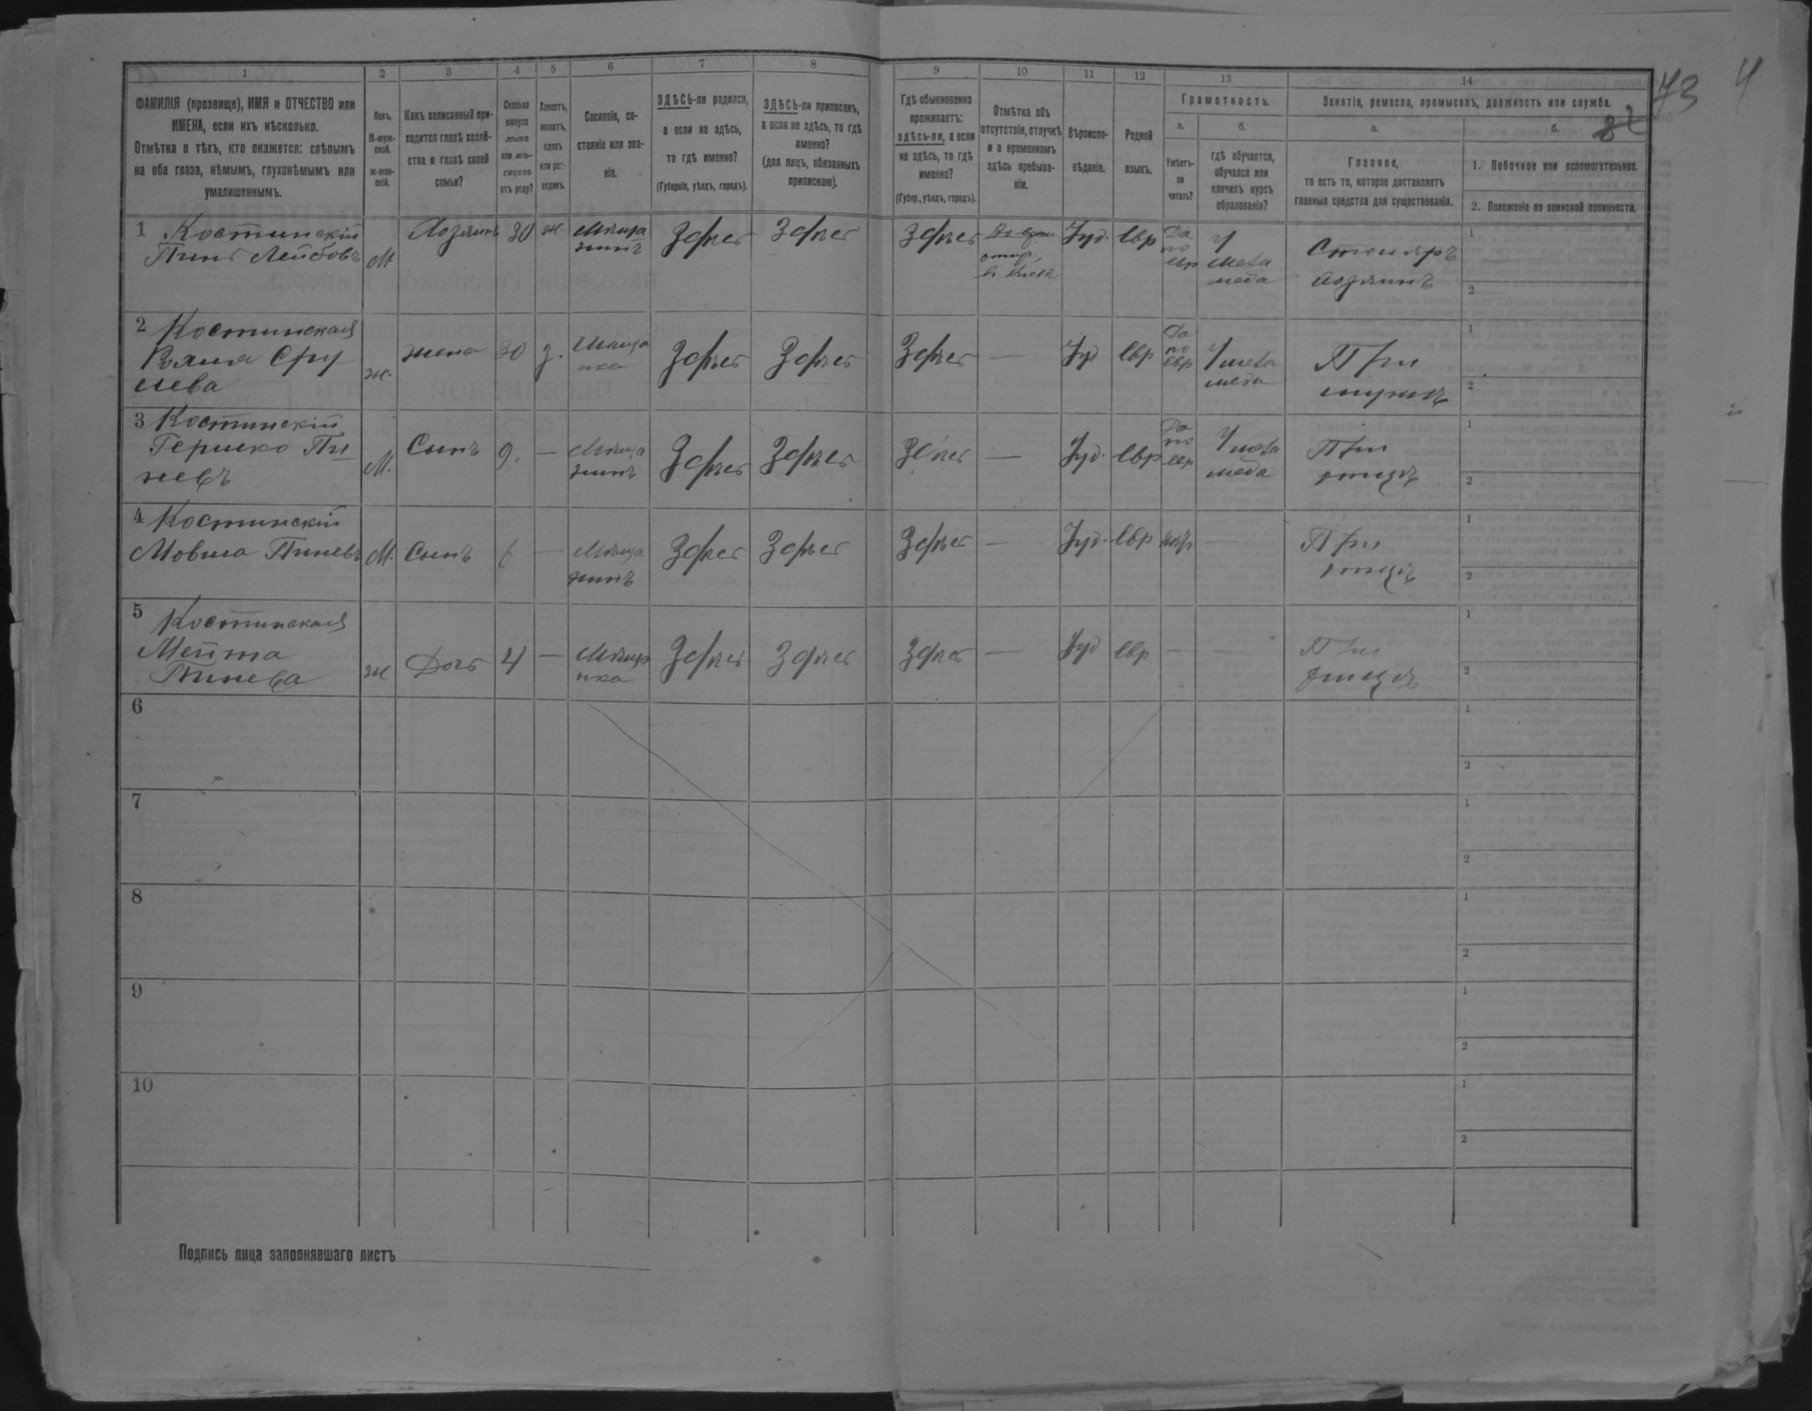 73 4
1 2 3 4 5 6 7 8 9 10 11 12 13 14
ФАМИЛІЯ (прозвище), ИМЯ и ОТЧЕСТВО или
ИМЕНА, если ихъ нѣсколько.
Отмѣтка о тѣхъ, кто окажется: слѣпымъ
на оба глаза, нѣмымъ, глухонѣмымъ или
умалишеннымъ.
Полъ.
М-муж-
ской.
ж-жен-
скій.
Какъ записанный при-
ходится главѣ хозяй-
ства и главѣ своей
семьи?
Сколько
минуло
лѣтъ
или мѣ-
сяцевъ
отъ роду?
Холостъ,
женатъ,
вдовъ
или раз-
веденъ.
Сословіе, со-
стояніе или зва-
ніе.
ЗДѢСЬ-ли родился,
а если не здѣсь,
то гдѣ именно?
(Губернія, уѣздъ, городъ).
ЗДѢСЬ-ли приписанъ,
а если не здѣсь, то гдѣ
именно?
(для лицъ, обязанныхъ
припискою).
Гдѣ обыкновенно
проживаетъ:
здѣсь-ли, а если
не здѣсь, то гдѣ
именно?
(Губер., уѣздъ, городъ).
Отмѣтка объ
отсутствіи, отлучкѣ
и о временномъ
здѣсь пребыва-
ніи.
Вѣроиспо-
вѣданіе.
Родной
языкъ.
Грамотность.
а.
Умѣетъ-
ли
читать?
б.
гдѣ обучается,
обучался или
кончилъ курсъ
образованія?
Занятіе, ремесло, промыселъ, должность или служба.
а.
Главное,
то есть то, которое доставляетъ
главныя средства для существованія.
б.
1. Побочное или вспомогательное.
2. Положеніе по воинской повинности.
1 Костинскій
Пинь Лейбовъ
М
Хозяинъ
30
ж.
Мѣща
нинъ
Здѣсь
Здѣсь
Здѣсь
Іуд.
Евр
Да
по
евр
У
мела
меда
Столяръ
хозяинъ
1
2
2 Костинская
ж.
жена
30
з.
Мѣща
нка
Здѣсь
Здѣсь
Здѣсь
—
Іуд
Евр
Да
по
евр
У мела
меда
При
мужѣ
1
2
3 Костинскій
Гершко Пи
невъ
М.
Сынъ
9.
—
Мѣща
нинъ
Здѣсь
Здѣсь
Здѣсь
—
Іуд.
Евр
Да
по
евр
У мела
меда
При
отцѣ
1
2
4 Костинскій
Мовша Пиневъ
М.
Сынъ
6
—
Мѣща
нинъ
Здѣсь
Здѣсь
Здѣсь
—
Іуд.
Евр
нѣт
—
При
отцѣ
1
2
5 Костинская
Мейта
Пинева
ж
Дочь
4
—
Мѣща
нка
Здѣсь
Здѣсь
Здѣсь
—
Іуд
Евр
—
—
При
отцѣ
1
2
6
1
2
7
1
2
8
1
2
9
1
2
10
1
2
Подпись лица заполнявшаго листъ